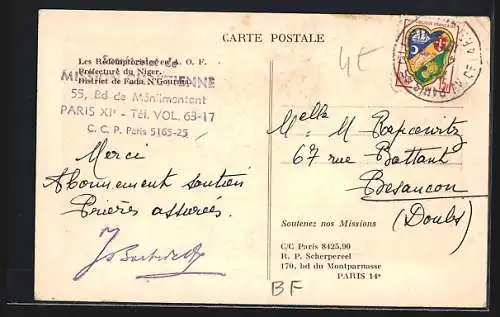 CARTE POSTALE
4E
Les Rédemptoristes en A. O. F.
Préfecture du Niger.
District de Fada N'Gourma.
55, Bd de Ménilmontant
PARIS XIe - Tél. VOL. 63-17
C. C. P. Paris 5165-25
Merci
Abonnement soutien
Prières assurées.
Melle
67 rue Battant
Besançon
(Doubs)
Soutenez nos Missions
C/C Paris 8425,90
R. P. Scherpereel
170, bd du Montparnasse
PARIS 14e
BF